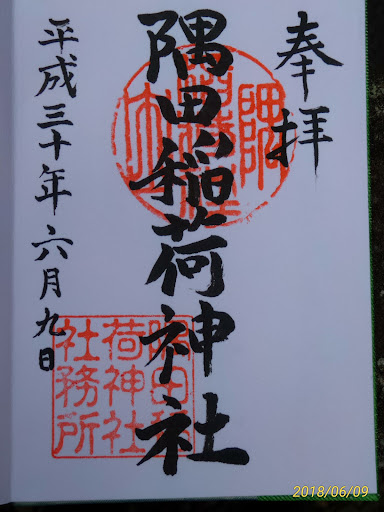 奉拝
隅田稲荷神社
平成三十年六月九日
隅田稲
荷神社
社務所
2018/06/09